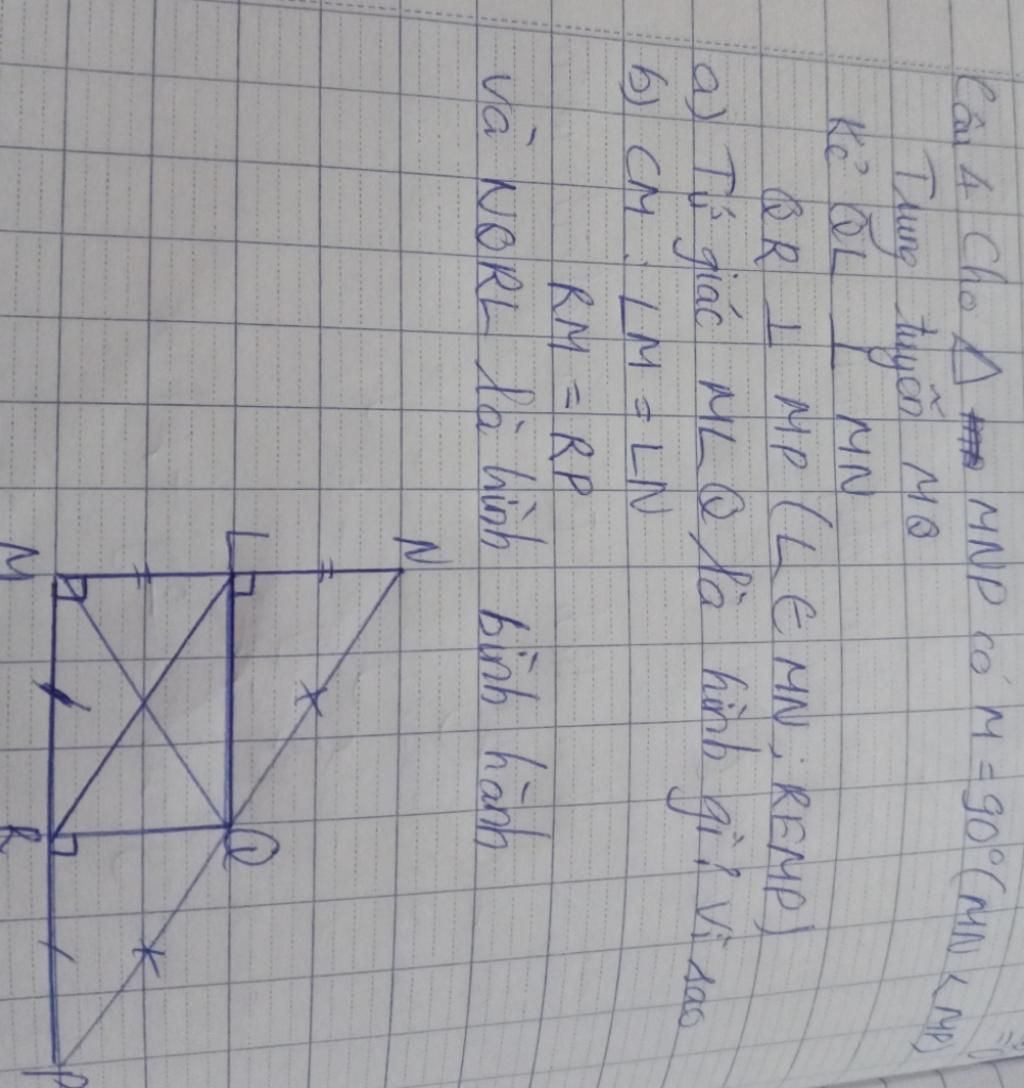 Câu 4 Cho △ MNP có M = 90° (MN < MP)
Trung tuyến MQ
Kẻ QL ⊥ MN
QR ⊥ MP (L ∈ MN; R ∈ MP)
a) Tứ giác MLQ là hình gì? Vì sao
b) CM: LM = LN
RM = RP
và NQRL là hình bình hành
N
L
Q
M
R
P